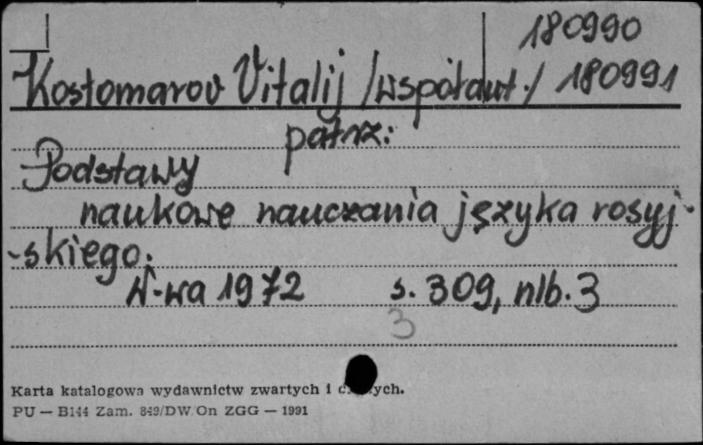 180990
Kostomarov Vitalij /współaut./ 180991
patrz:
Podstawy
naukowe nauczania języka rosyj-
-skiego.
W-wa 1972 s. 309, nlb. 3
3
Karta katalogowa wydawnictw zwartych i
PU — B144 Zam. 849/DW/On ZGG — 1991